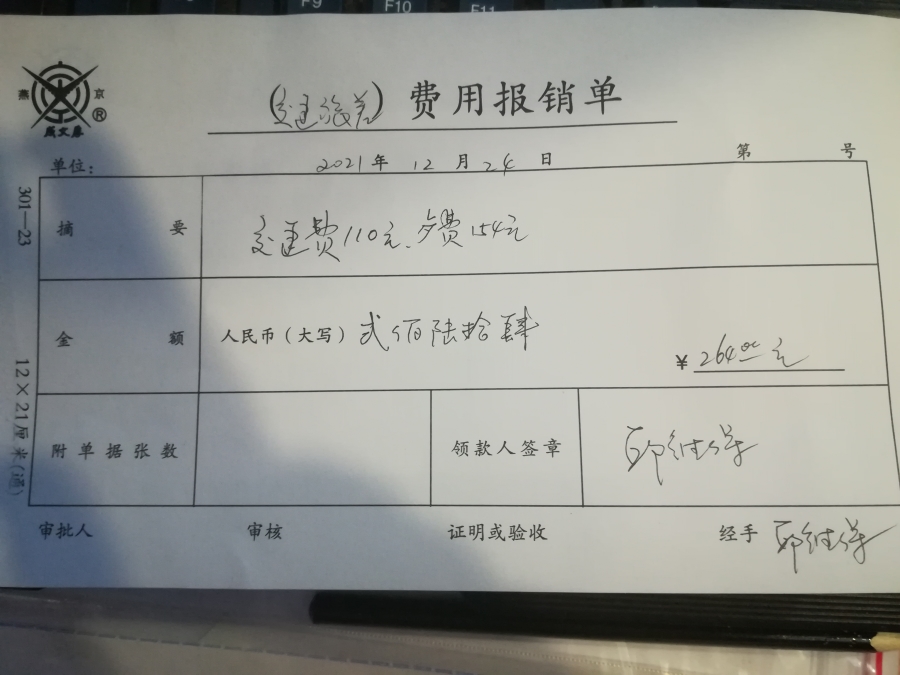 F9 F10 F11
燕 京
®
成文厚
(交通旅差) 费用报销单
单位: 2021年 12 月 24 日 第 号
301—23
12×21厘米(通)
摘 要 交通费110元、夕费154元
金 额 人民币(大写) 贰佰陆拾肆
¥ 264.00元
附单据张数 领款人签章
审批人 审核 证明或验收 经手